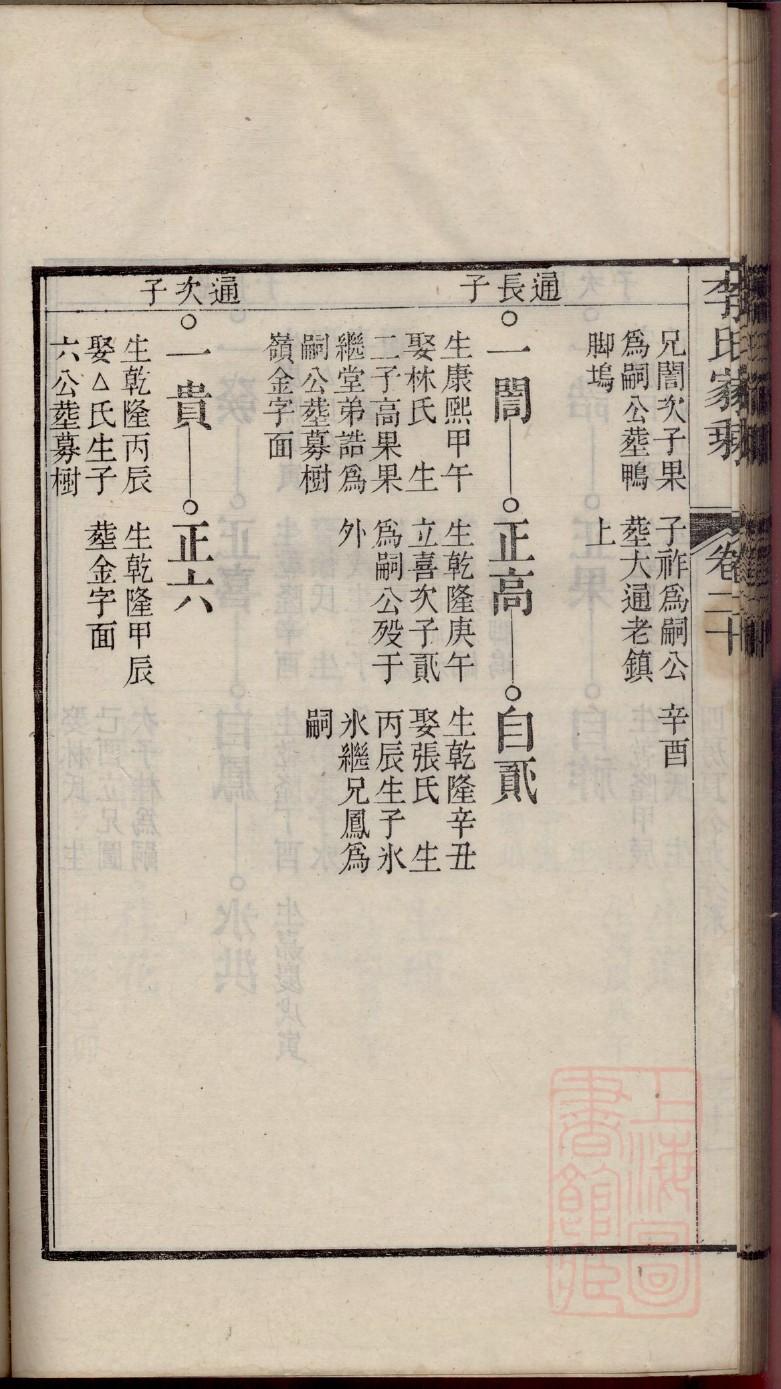 李氏家乘
卷二十
兄誾次子果
為嗣公塟鴨
脚塢
子祚為嗣公
塟大通老鎮
上
辛酉
通長子
一誾
生康熙甲午
娶林氏 生
二子高果果
繼堂弟誥為
嗣公塟募樹
嶺金字面
正高
生乾隆庚午
立喜次子貮
為嗣公歿于
外
自貮
生乾隆辛丑
娶張氏 生
丙辰生子氷
氷繼兄鳳為
嗣
通次子
一貴
生乾隆丙辰
娶△氏生子
六公塟募樹
正六
生乾隆甲辰
塟金字面
上海圖書館藏